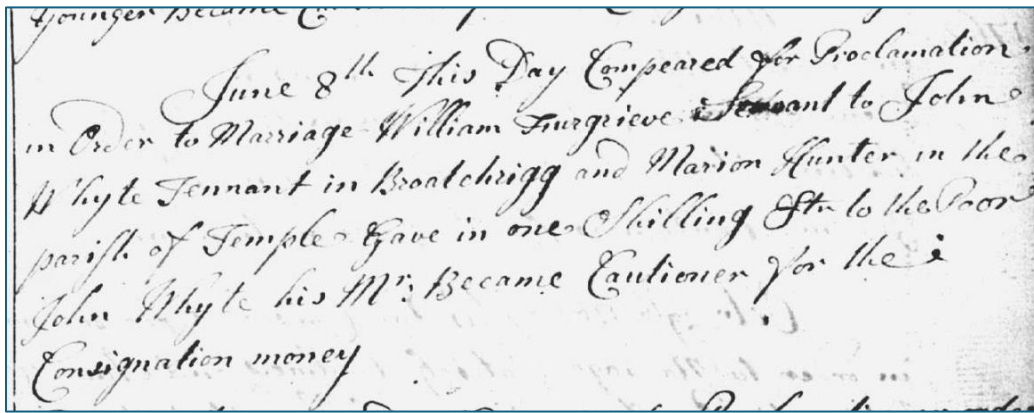 younger Became
June 8th This Day Compeared for Proclamation
in Order to Marriage William Furgrieve Servant to John
Whyte Tennant in Broatchrigg and Marion Hunter in the
parish of Temple Gave in one Shilling Str to the Poor
John Whyte his Mr. Became Cautioner for the
Consignation money